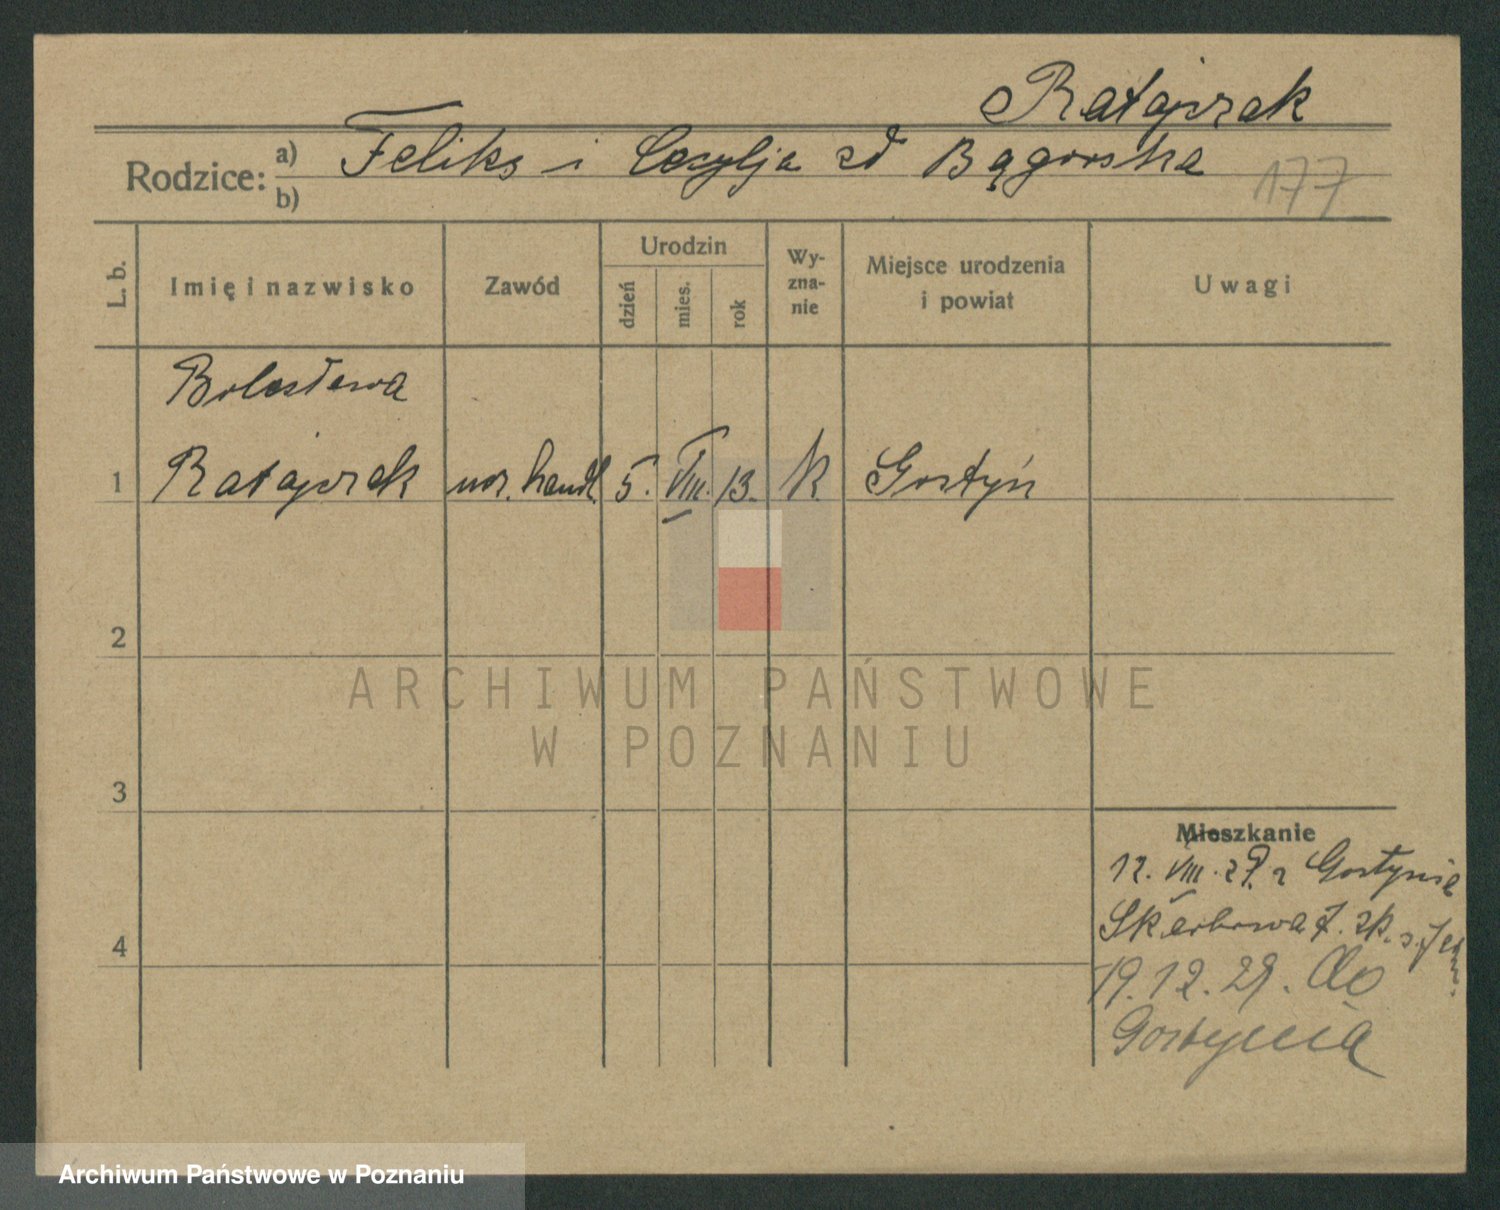 Ratajczak
Rodzice: a) Feliks i Cecylja zd Bągorska
b)
177
L. b.
Imię i nazwisko
Zawód
Urodzin
dzień
mies.
rok
Wy-
zna-
nie
Miejsce urodzenia
i powiat
Uwagi
Bolesława
1 Ratajczak ucz. handl. 5. VIII. 13. K Gostyń
2
3
4
ARCHIWUM PAŃSTWOWE
W POZNANIU
Mieszkanie
12. VIII. 29. z Gostynia
Skarbowa 7.
19.12.29. do
Gostynia
Archiwum Państwowe w Poznaniu